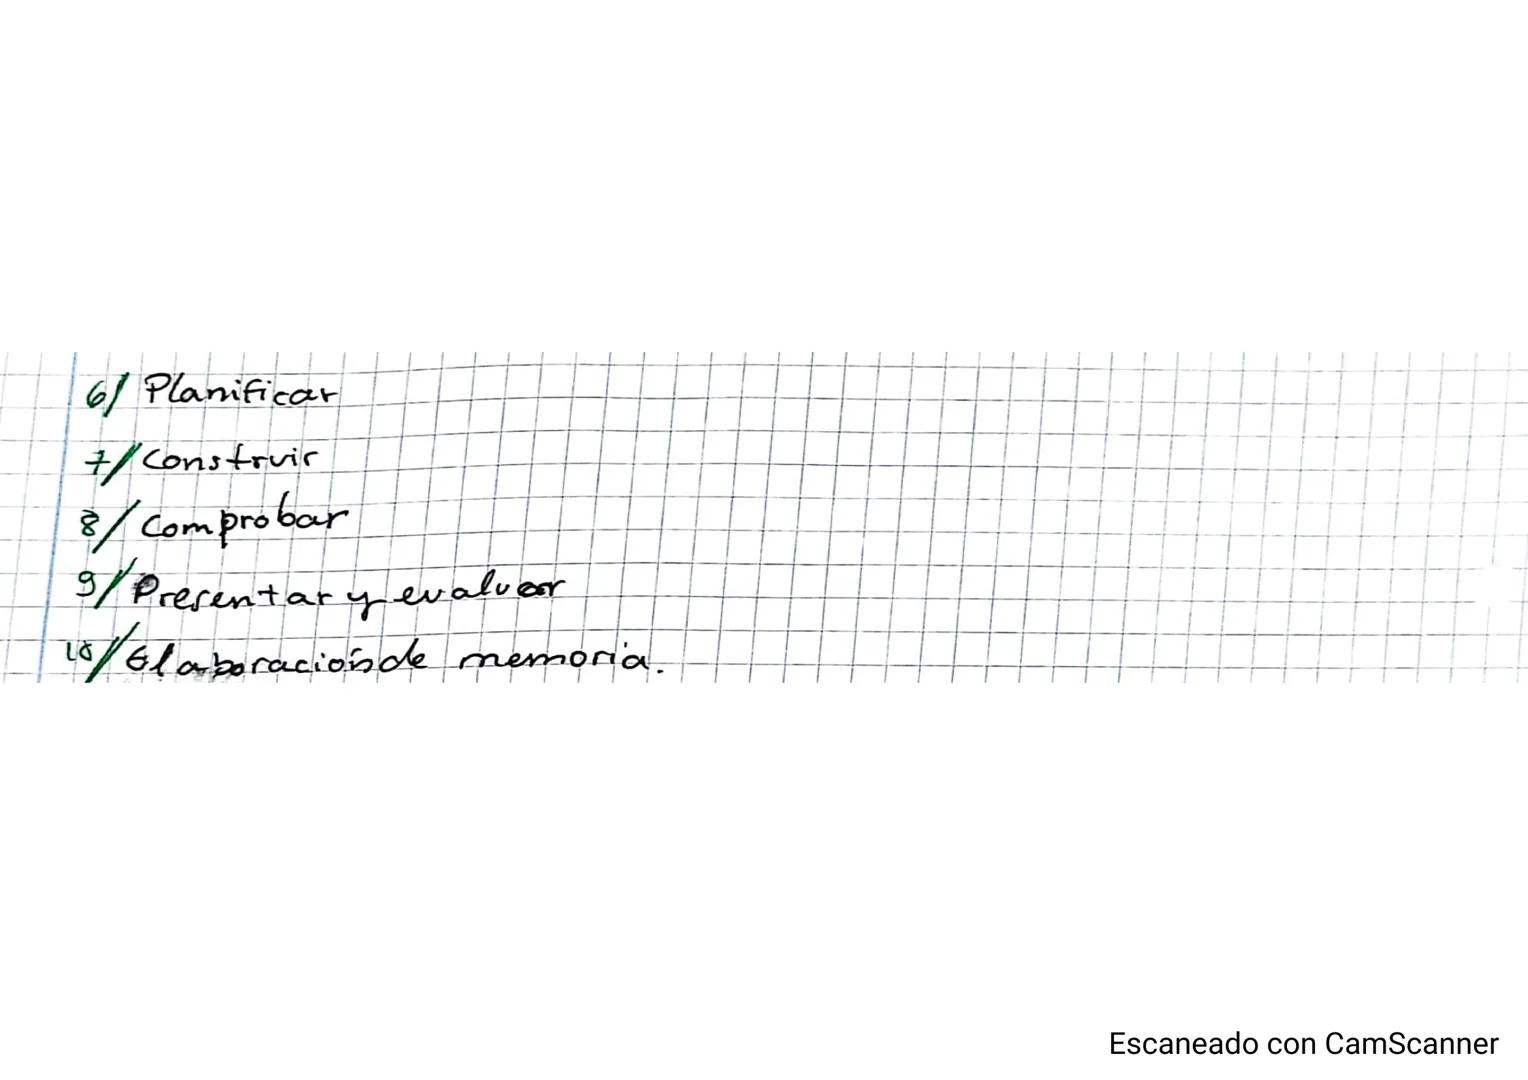 6/ Planificar
7/ Construir
8/ Comprobar
9/ Presentar y evaluar
10/ Elaboración de memoria.
Escaneado con CamScanner